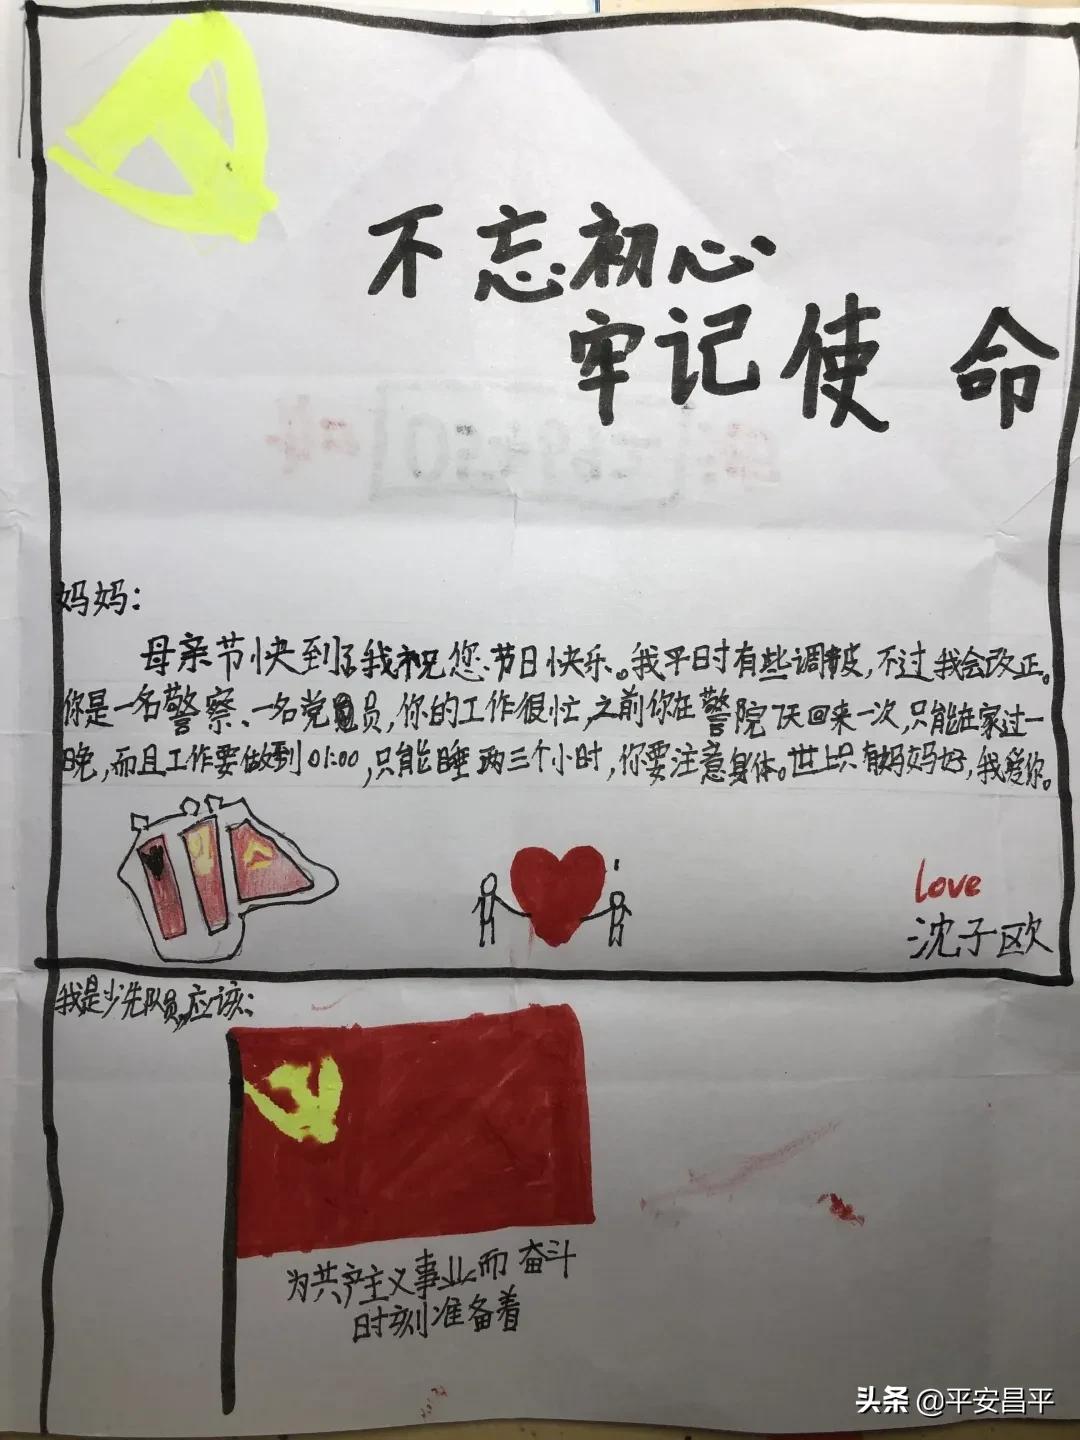 不忘初心
牢记使命
妈妈：
母亲节快到了我祝您节日快乐。我平时有些调皮，不过我会改正。
你是一名警察、一名党员，你的工作很忙，之前你在警院7天回来一次，只能在家过一
晚，而且工作要做到01:00，只能睡两三个小时，你要注意身体。世上只有妈妈好，我爱你。
love
沈子欧
我是少先队员，应该：
为共产主义事业而奋斗
时刻准备着
头条 @平安昌平